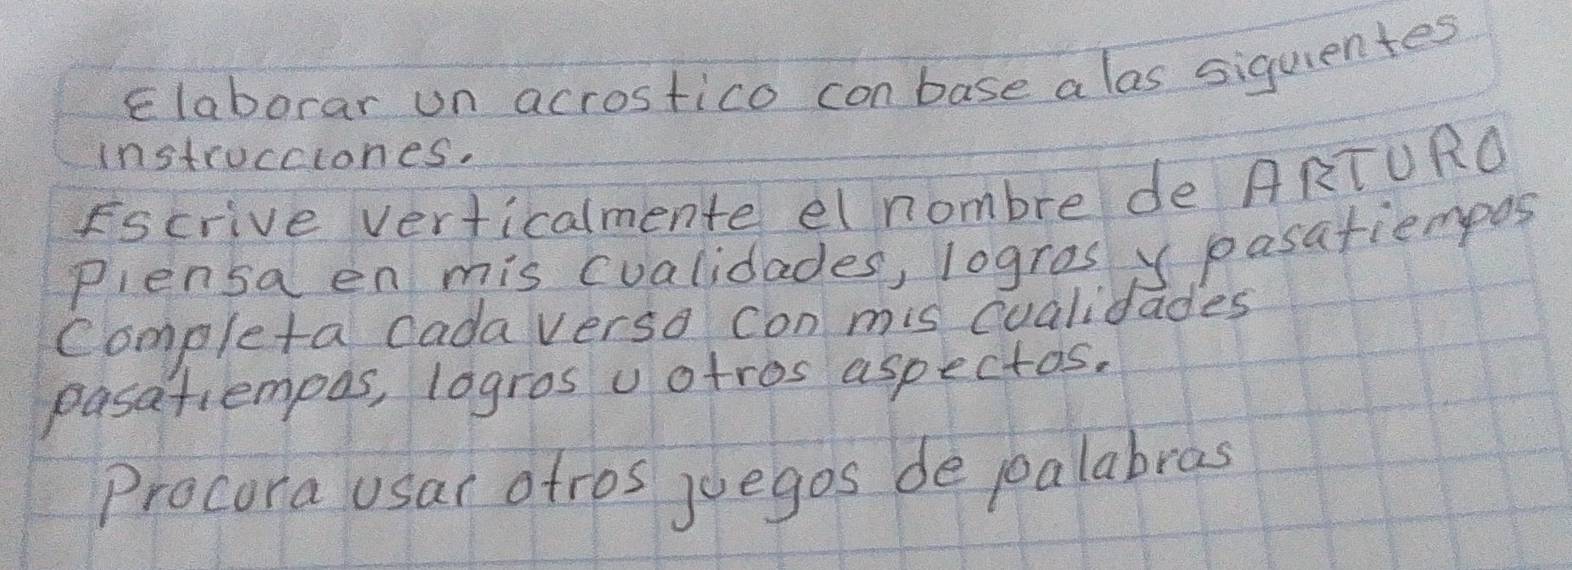 Elaborar un acrostico con base a las siguientes
instrucciones.
Escrive verticalmente el nombre de ARTURO
Piensa en mis cualidades, logros y pasatiempos
Completa cada verso con mis cualidades
pasatiempos, logros u otros aspectos.
Procura usar otros juegos de palabras